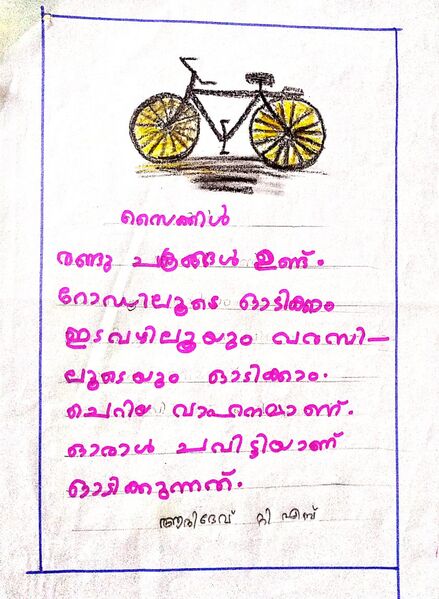 സൈക്കിൾ
രണ്ടു ചക്രങ്ങൾ ഉണ്ട്.
റോഡിലൂടെ ഓടിക്കാം
ഇടവഴിലൂയും വരമ്പി-
ലൂടെയും ഓടിക്കാം.
ചെറിയ വാഹനമാണ്.
ഒരാൾ ചവിട്ടിയാണ്
ഓടിക്കുന്നത്.
ആദിദേവ് റ്റി എസ്